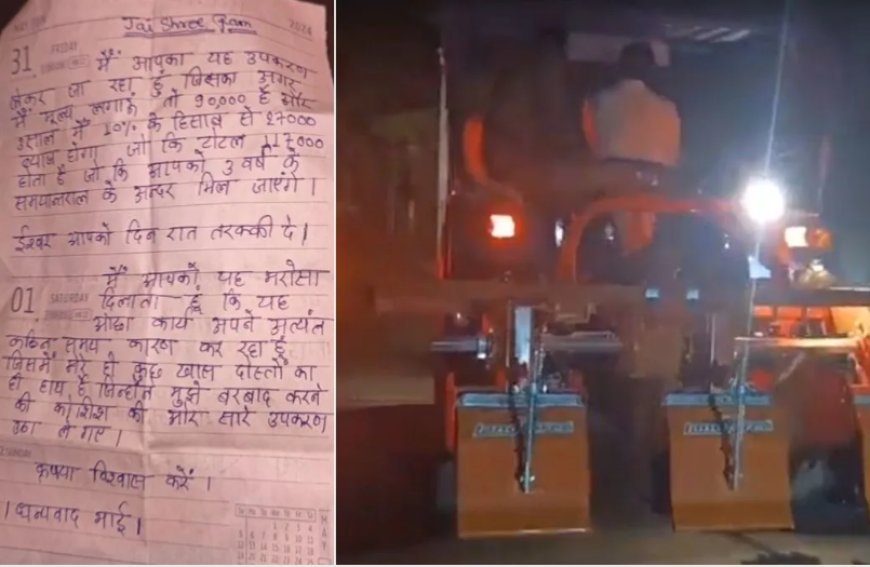 Jai Shree Ram
2024
31 FRIDAY
मैं आपका यह उपकरण
लेकर जा रहा हूं जिसका अगर
मैं मूल्य लगाऊं तो 90,000 है और
3 साल में 10% के हिसाब से 27000
ब्याज होगा जो कि टोटल 117000
होता है जो कि आपको 3 वर्ष के
समयान्तराल के अन्दर मिल जाएंगे।
ईश्वर आपको दिन रात तरक्की दे।
मैं आपको यह भरोसा
01 SATURDAY
दिलाता हूं कि यह
ओछा कार्य अपने अत्यंत
कठिन समय कारण कर रहा हूं
जिसमें मेरे ही कुछ खास दोस्तों का
ही हाथ है जिन्होंने मुझे बरबाद करने
की कोशिश की और सारे उपकरण
उठा ले गए।
SUNDAY
कृपया विश्वास करें।
। धन्यवाद भाई।